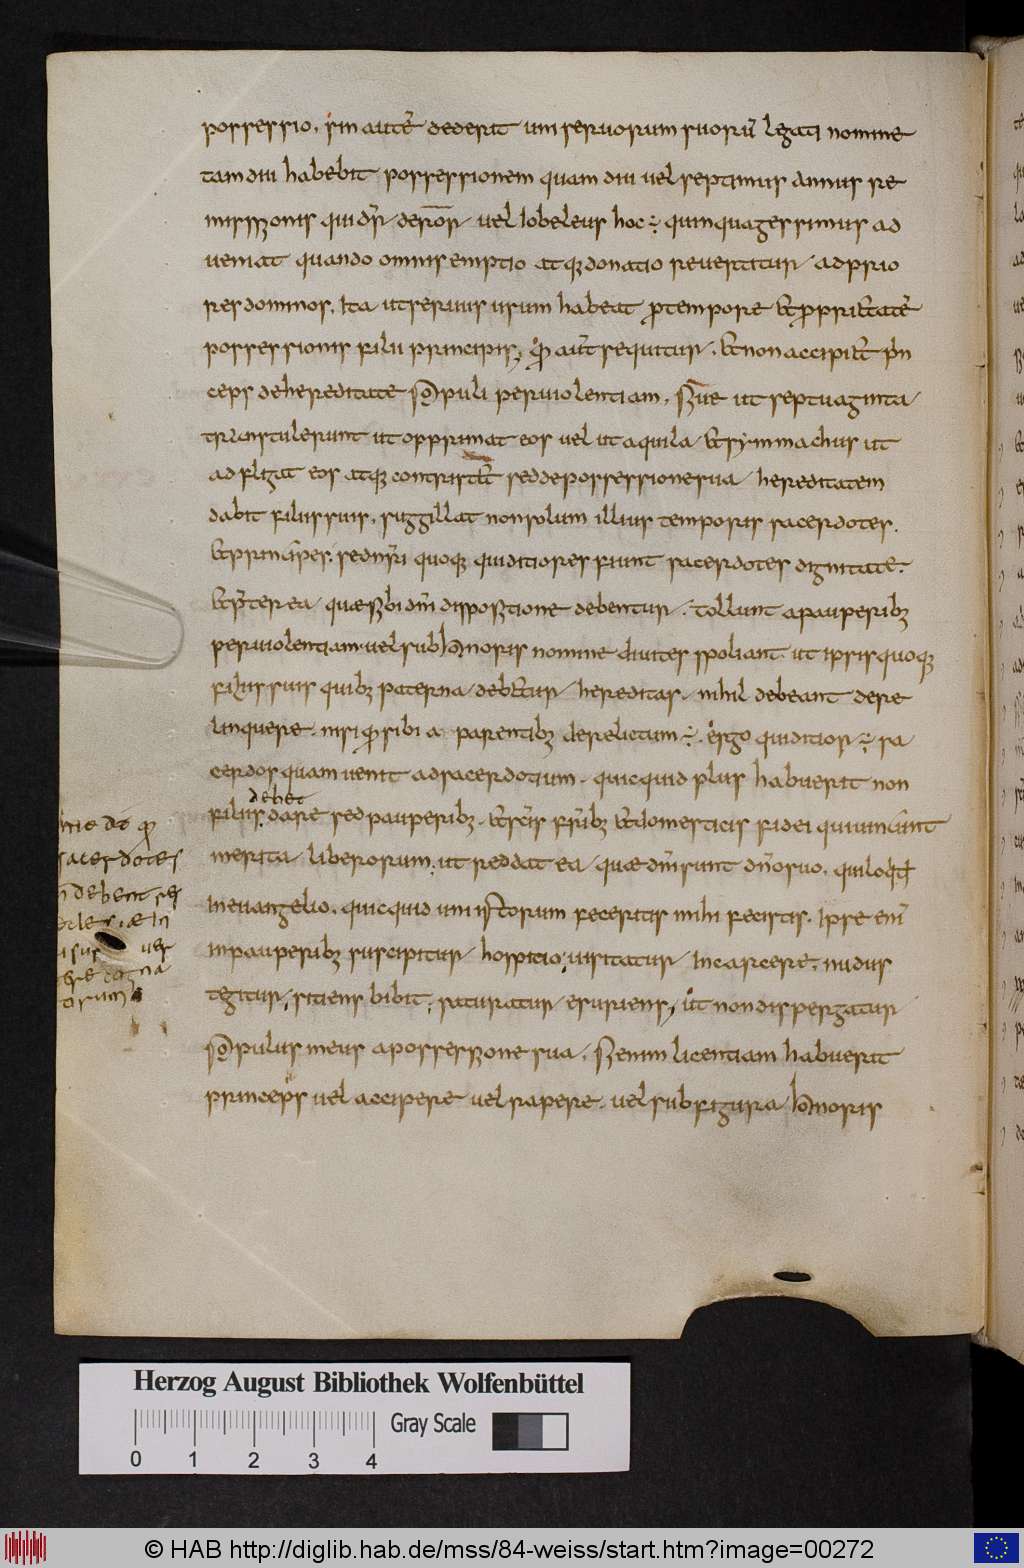 possessio. sin autē dederit uni seruorum suorū legati nomine
tamdiu habebit possessionem quam diu uel septimus annus re
missionis qui dr̄ deror uel Iobeleus hoc ÷ quinquagessimus ad
ueniat quando omnis emptio atq; donatio reuertitur ad prio
res dominos. Ita ut seruus usum habeat ꝓ tempore & ꝓprietatē
possessionis filii principis, qđ aut̄ sequitur. & non accipiet prin
ceps de hereditate populi per uiolentiam, siue ut septuaginta
transtulerunt ut opprimat eos uel ut aquila & symmachus ut
adfligat eos atq; contristet sed de possessione sua hereditatem
dabit filiis suis. suggillat non solum illius temporis sacerdotes.
& principes. sed nr̄i quoq; qui ditiores fiunt sacerdotes dignitate.
& pter ea quae sibi dn̄i dispositione debentur. tollunt a pauperib;
per uiolentiam. uel sub honoris nomine diuites spoliant. ut ipsis quoq;
filiis suis quib; paterna debetur hereditas. nihil debeant dere
linquere. nisi qđ sibi a parentib; derelictum ÷. ergo qui ditior ÷ sa
cerdos quam uenit ad sacerdotium. quicquid plus habuerit non
debet
filiis dare sed pauperib;. & scis frib; & domesticis fidei qui uincunt
merita liberorum. ut reddat ea quae dn̄i sunt dn̄o suo. qui loq̄t̄
In euangelio. quicquid uni istorum feceritis mihi fecistis. Ipse enī
in pauperib; suscipitur hospitio; uisitatur In carcere; nudus
tegitur; sitiens bibit; saturatur esuriens, ut non dispergatur
populus meus a possessione sua. si enim licentiam habuerit
princeps uel accipere uel rapere. uel sub figura honoris
hic dt qđ
sacerdotes
debent
Herzog August Bibliothek Wolfenbüttel
Gray Scale
0 1 2 3 4
© HAB http://diglib.hab.de/mss/84-weiss/start.htm?image=00272